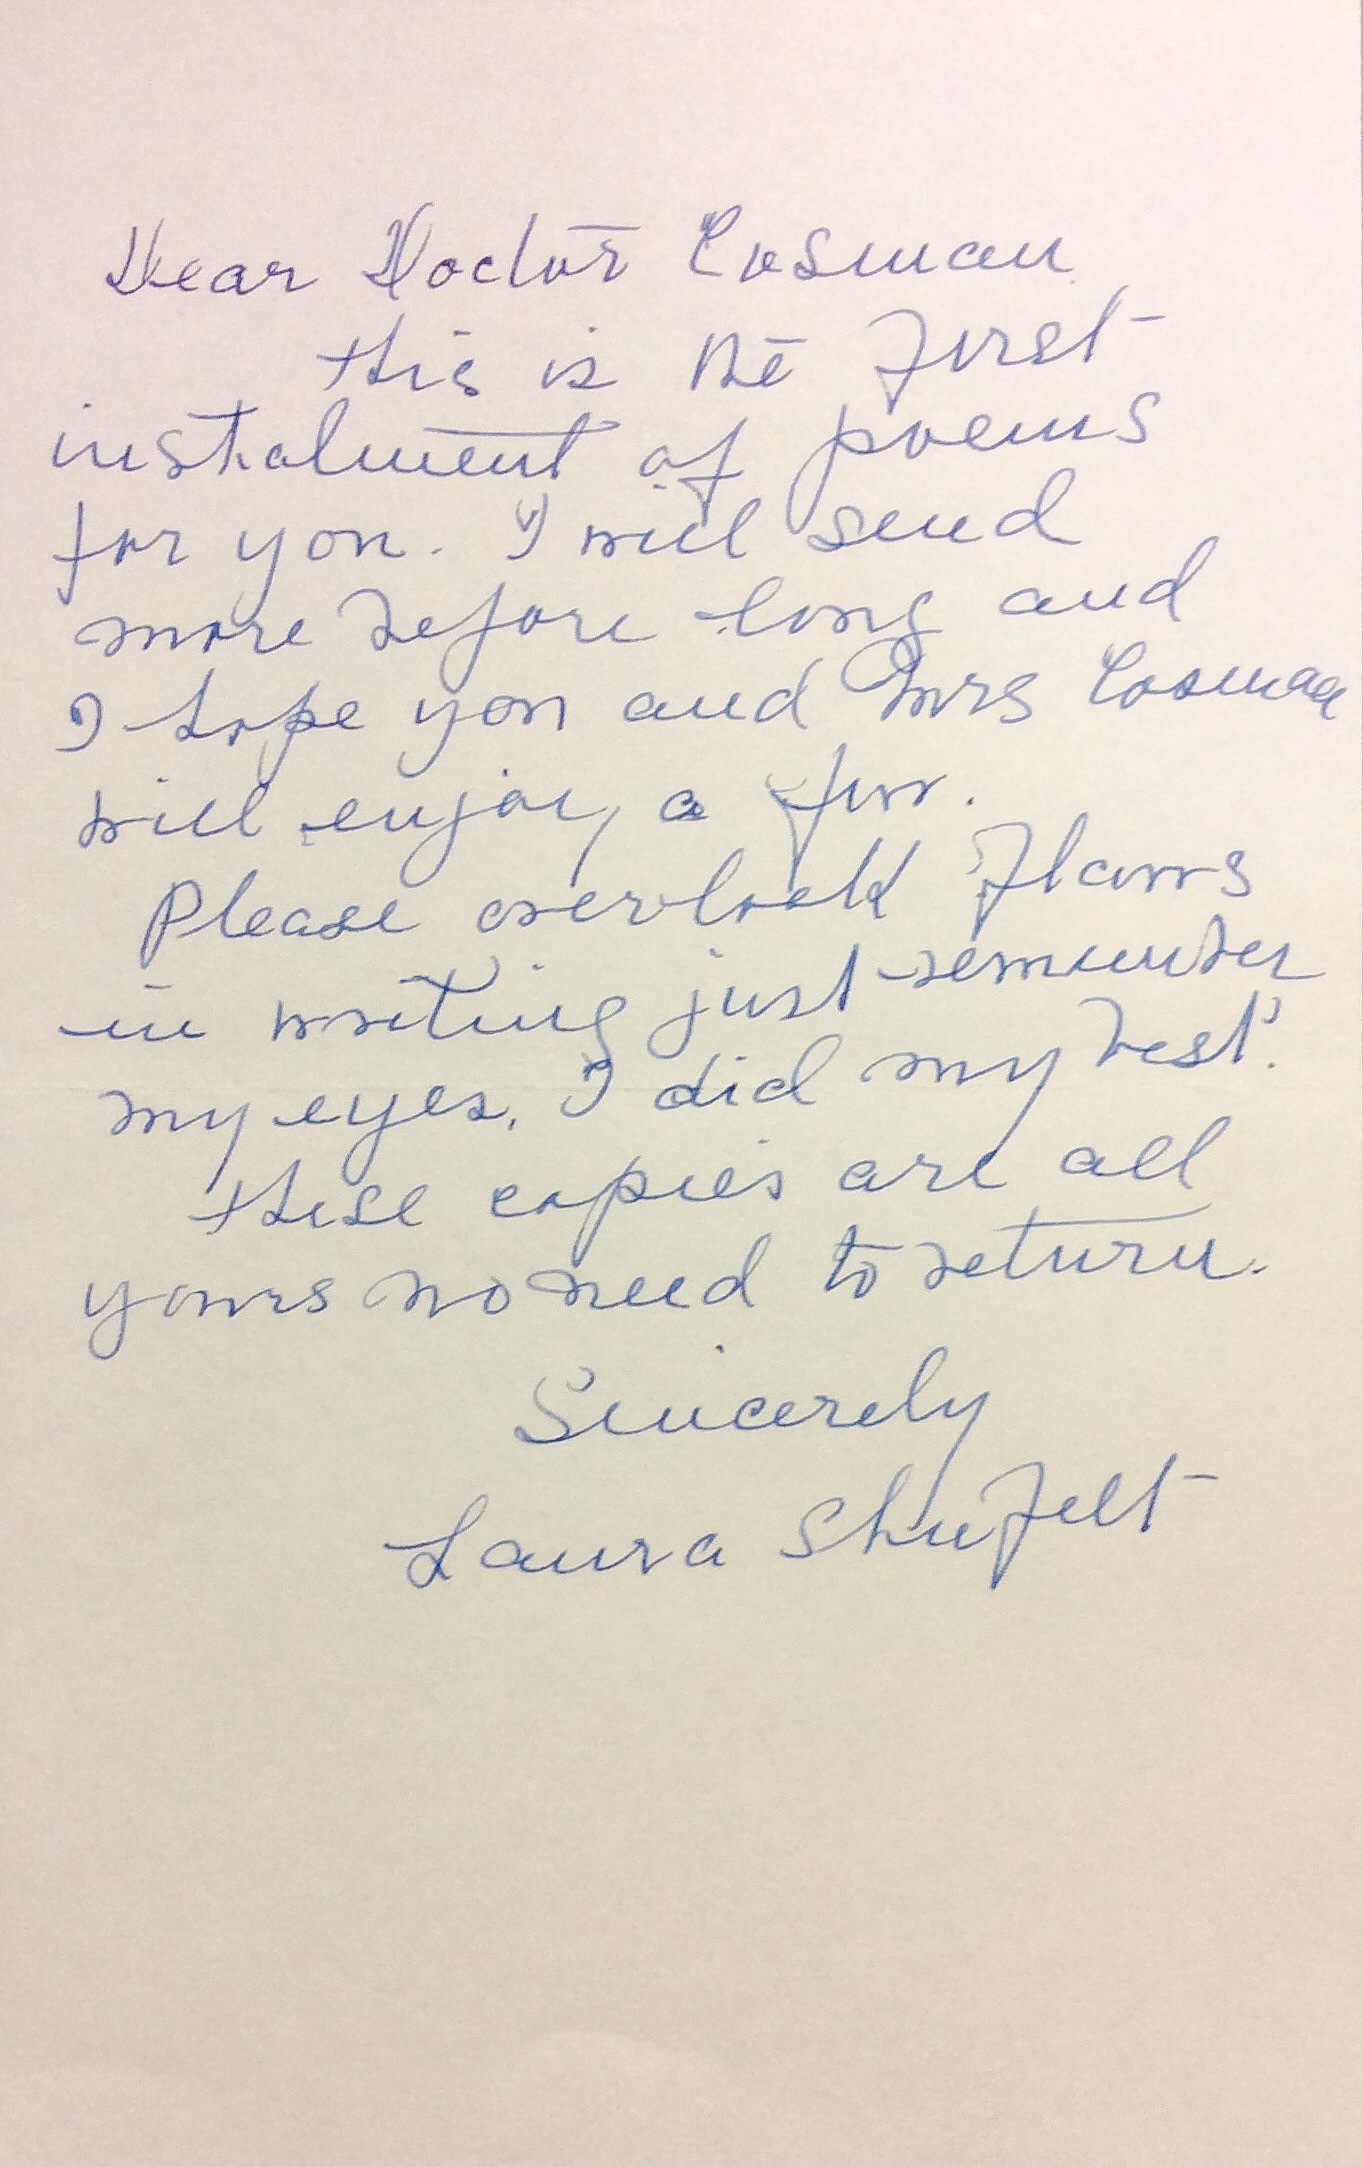 Dear Doctor Cosman
this is the first
instalment of poems
for you. I will send
more before long and
I hope you and Mrs Cosman
will enjoy a few.
Please overlook flaws
in writing just remember
my eyes. I did my best.
these copies are all
yours no need to return.
Sincerely
Laura Shufelt